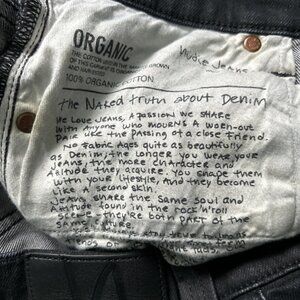 ORGANIC
Nudie Jeans
THE COTTON USED IN THE
OF THIS GARMENT IS ORGANICALLY GROWN
100% ORGANIC COTTON
The Naked truth about Denim
We Love Jeans, a passion we share
with anyone who mourns a worn-out
pair like the passing of a close friend.
No fabric ages quite as beautifully
as Denim; the longer you wear your
jeans, the more character and
attitude they acquire. You shape them
with your lifestyle, and they become
like a second skin.
Jeans share the same soul and
attitude found in the rock'n'roll
scene - they're both part of the
same culture.